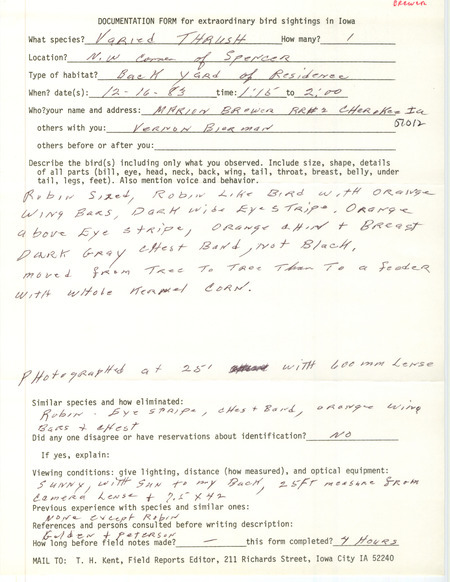 BREWER
DOCUMENTATION FORM for extraordinary bird sightings in Iowa
What species? Varied Thrush How many? 1
Location? N.W Corner of Spencer
Type of habitat? Back yard of Residence
When? date(s): 12-16-83 time: 1:15 to 2:00
Who?your name and address: Marion Brewer RR#2 Cherokee Ia
51012
others with you: Vernon Bierman
others before or after you:
Describe the bird(s) including only what you observed. Include size, shape, details
of all parts (bill, eye, head, neck, back, wing, tail, throat, breast, belly, under
tail, legs, feet). Also mention voice and behavior.
Robin Sized, Robin Like Bird with orange
wing Bars, Dark wide Eye Stripe, Orange
above Eye stripe, orange chin & Breast
Dark Gray chest Band, not Black,
moved from Tree To Tree Then To a feeder
with whole Kernel Corn.
Photographed at 25' with 600mm Lense
Similar species and how eliminated:
Robin. Eye stripe, chest Band, orange wing
Bars & chest
Did any one disagree or have reservations about identification? No
If yes, explain:
Viewing conditions: give lighting, distance (how measured), and optical equipment:
Sunny, with sun to my Back, 25ft measure from
Camera Lense & 7.5 x 42
Previous experience with species and similar ones:
None except Robin
References and persons consulted before writing description:
Golden & Peterson
How long before field notes made? — this form completed? 4 Hours
MAIL TO: T. H. Kent, Field Reports Editor, 211 Richards Street, Iowa City IA 52240